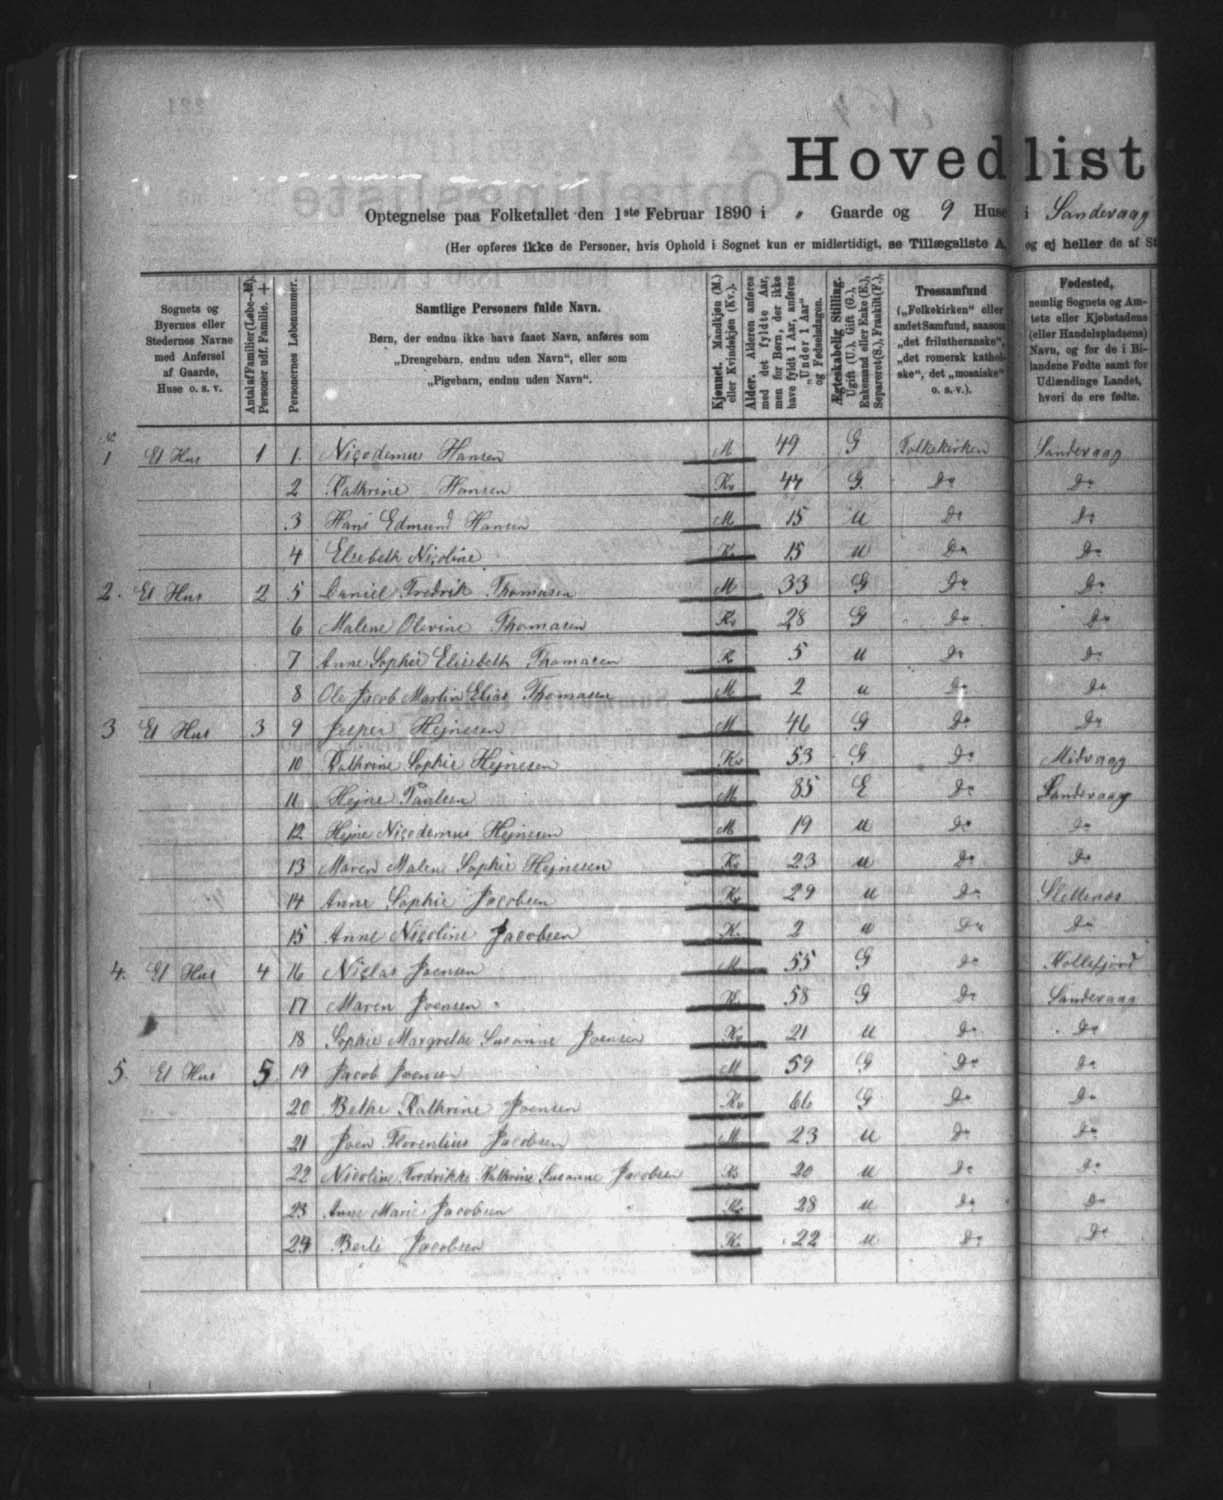 Hovedlist
Optegnelse paa Folketallet den 1ste Februar 1890 i „ Gaarde og 9 Huse i Sandevaag
(Her opføres ikke de Personer, hvis Ophold i Sognet kun er midlertidigt, se Tillægsliste A, og ej heller de af St
Sognets og Byernes eller Stedernes Navne med Anførsel af Gaarde, Huse o. s. v.
Antal af Familier (Løbe-№). Personer udf. Familie. +
Personernes Løbenummer.
Samtlige Personers fulde Navn.
Børn, der endnu ikke have faaet Navn, anføres som
„Drengebarn, endnu uden Navn“, eller som
„Pigebarn, endnu uden Navn“.
Kjønnet. Mandkjøn (M.) eller Kvindekjøn (Kv.).
Alder. Alderen anføres med det fyldte Aar, men for Børn, der ikke have fyldt 1 Aar, anføres „Under 1 Aar“ og Fødselsdagen.
Ægteskabelig Stilling. Ugift (U.), Gift (G.), Enkemand eller Enke (E.), Separeret (S.), Fraskilt (F.).
Trossamfund („Folkekirken“ eller andet Samfund, saasom „det frilutheranske“, „det romersk katholske“, det „mosaiske“ o. s. v.).
Fødested, nemlig Sognets og Amtets eller Kjøbstadens (eller Handelspladsens) Navn, og for de i Bilandene Fødte samt for Udlændinge Landet, hvori de ere fødte.
1 Et Hus 1 1. Nicodemus Hansen M 49 G Folkekirken Sandevaag
2 Kathrine Hansen Kv 47 G. Do Do
3 Hans Edmund Hansen M 15 U Do Do
4 Elsebeth Nicoline Kv 15 U Do Do
2. Et Hus 2 5 Daniel Fredrik Thomasen M 33 G Do Do
6 Malene Olevine Thomasen Kv 28 G Do Do
7 Anne Sophie Elisebeth Thomasen K 5 U Do Do
8 Ole Jacob Martin Elias Thomasen M 2 U Do Do
3 Et Hus 3 9 Jesper Hejnesen M 46 G Do Do
10 Kathrine Sophie Hejnesen Kv 53 G Do Midvaag
11 Hejne Poulsen M 85 E Do Sandevaag
12 Hejne Nicodemus Hejnesen M 19 U Do Do
13 Maren Malene Sophie Hejnesen Kv 23 U Do Do
14 Anne Sophie Jacobsen Kv 29 U Do Slettenæs
15 Anne Nicoline Jacobsen K. 2 U Do Do
4. Et Hus 4 16 Niclas Joensen M 55 G Do Kollefjord
17 Maren Joensen Kv 58 G Do Sandevaag
18 Sophie Margrethe Susanne Joensen Kv 21 U Do Do
5. Et Hus 5 19 Jacob Joensen M 59 G Do Do
20 Bethe Kathrine Joensen Kv 66 G Do Do
21 Joen Florentius Jacobsen M 23 U Do Do
22 Nicoline Fredrikke Kathrine Susanne Jacobsen Kv 20 U Do Do
23 Anne Marie Jacobsen Kv 28 U Do Do
24 Jacobsen K. 22 U Do Do